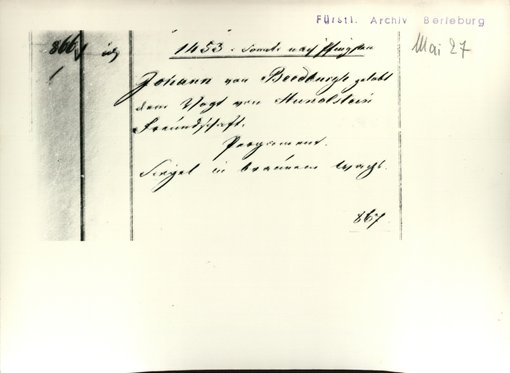 Fürstl. Archiv Berleburg
Mai 27
866
1453. Sonnt. nach Pfingsten
Johann von gelobt
dem Vogt von Hunolstein
Freundschaft.
Pergament.
Siegel in braunem Wachs.
867